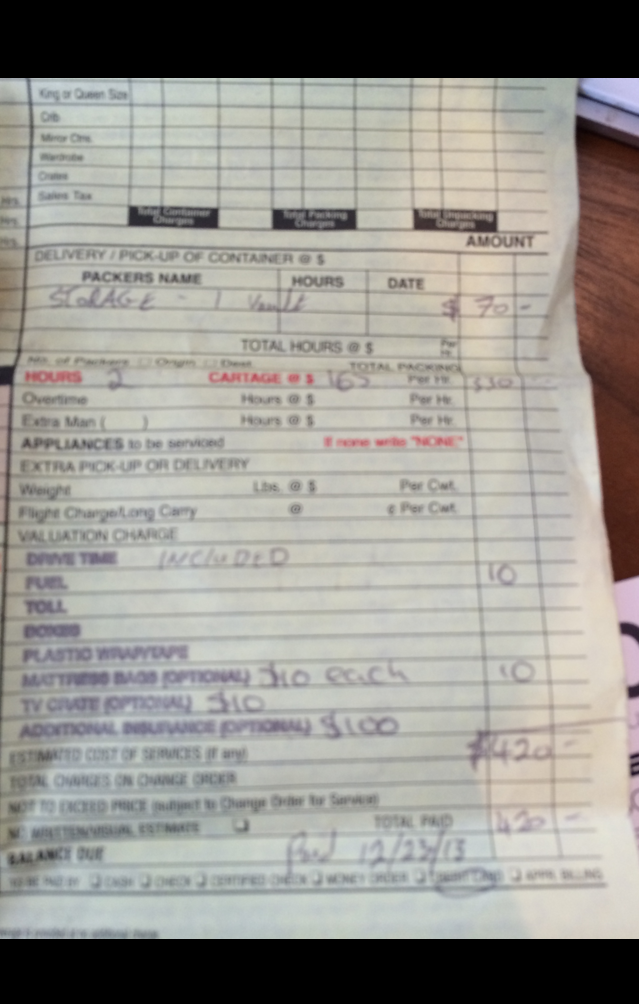 King or Queen Size
Crib
Mirror Ctns.
Wardrobe
Crates
Hrs. Sales Tax
Hrs. Total Container Charges Total Packing Charges Total Unpacking Charges
Hrs. AMOUNT
DELIVERY / PICK-UP OF CONTAINER @ $
PACKERS NAME HOURS DATE
STORAGE - 1 Vault $ 70 -
TOTAL HOURS @ $ Per Hr.
No. of Packers Origin Dest. TOTAL PACKING
HOURS 2 CARTAGE @ $ 165 Per Hr. 330 -
Overtime Hours @ $ Per Hr.
Extra Man ( ) Hours @ $ Per Hr.
APPLIANCES to be serviced If none write "NONE"
EXTRA PICK-UP OR DELIVERY
Weight Lbs. @ $ Per Cwt.
Flight Charge/Long Carry @ ¢ Per Cwt.
VALUATION CHARGE
DRIVE TIME INCLUDED
FUEL 10
TOLL
BOXES
PLASTIC WRAP/TAPE
MATTRESS BAGS (OPTIONAL) $10 each 10
TV CRATE (OPTIONAL) $10
ADDITIONAL INSURANCE (OPTIONAL) $100
ESTIMATED COST OF SERVICES (if any) $420 -
TOTAL CHARGES ON CHANGE ORDER
NOT TO EXCEED PRICE (subject to Change Order for Service)
NO WRITTEN/VISUAL ESTIMATE TOTAL PAID 420 -
BALANCE DUE Paid 12/23/13
TO BE PAID BY CASH CHECK CERTIFIED CHECK MONEY ORDER CREDIT CARD APPR. BILLING